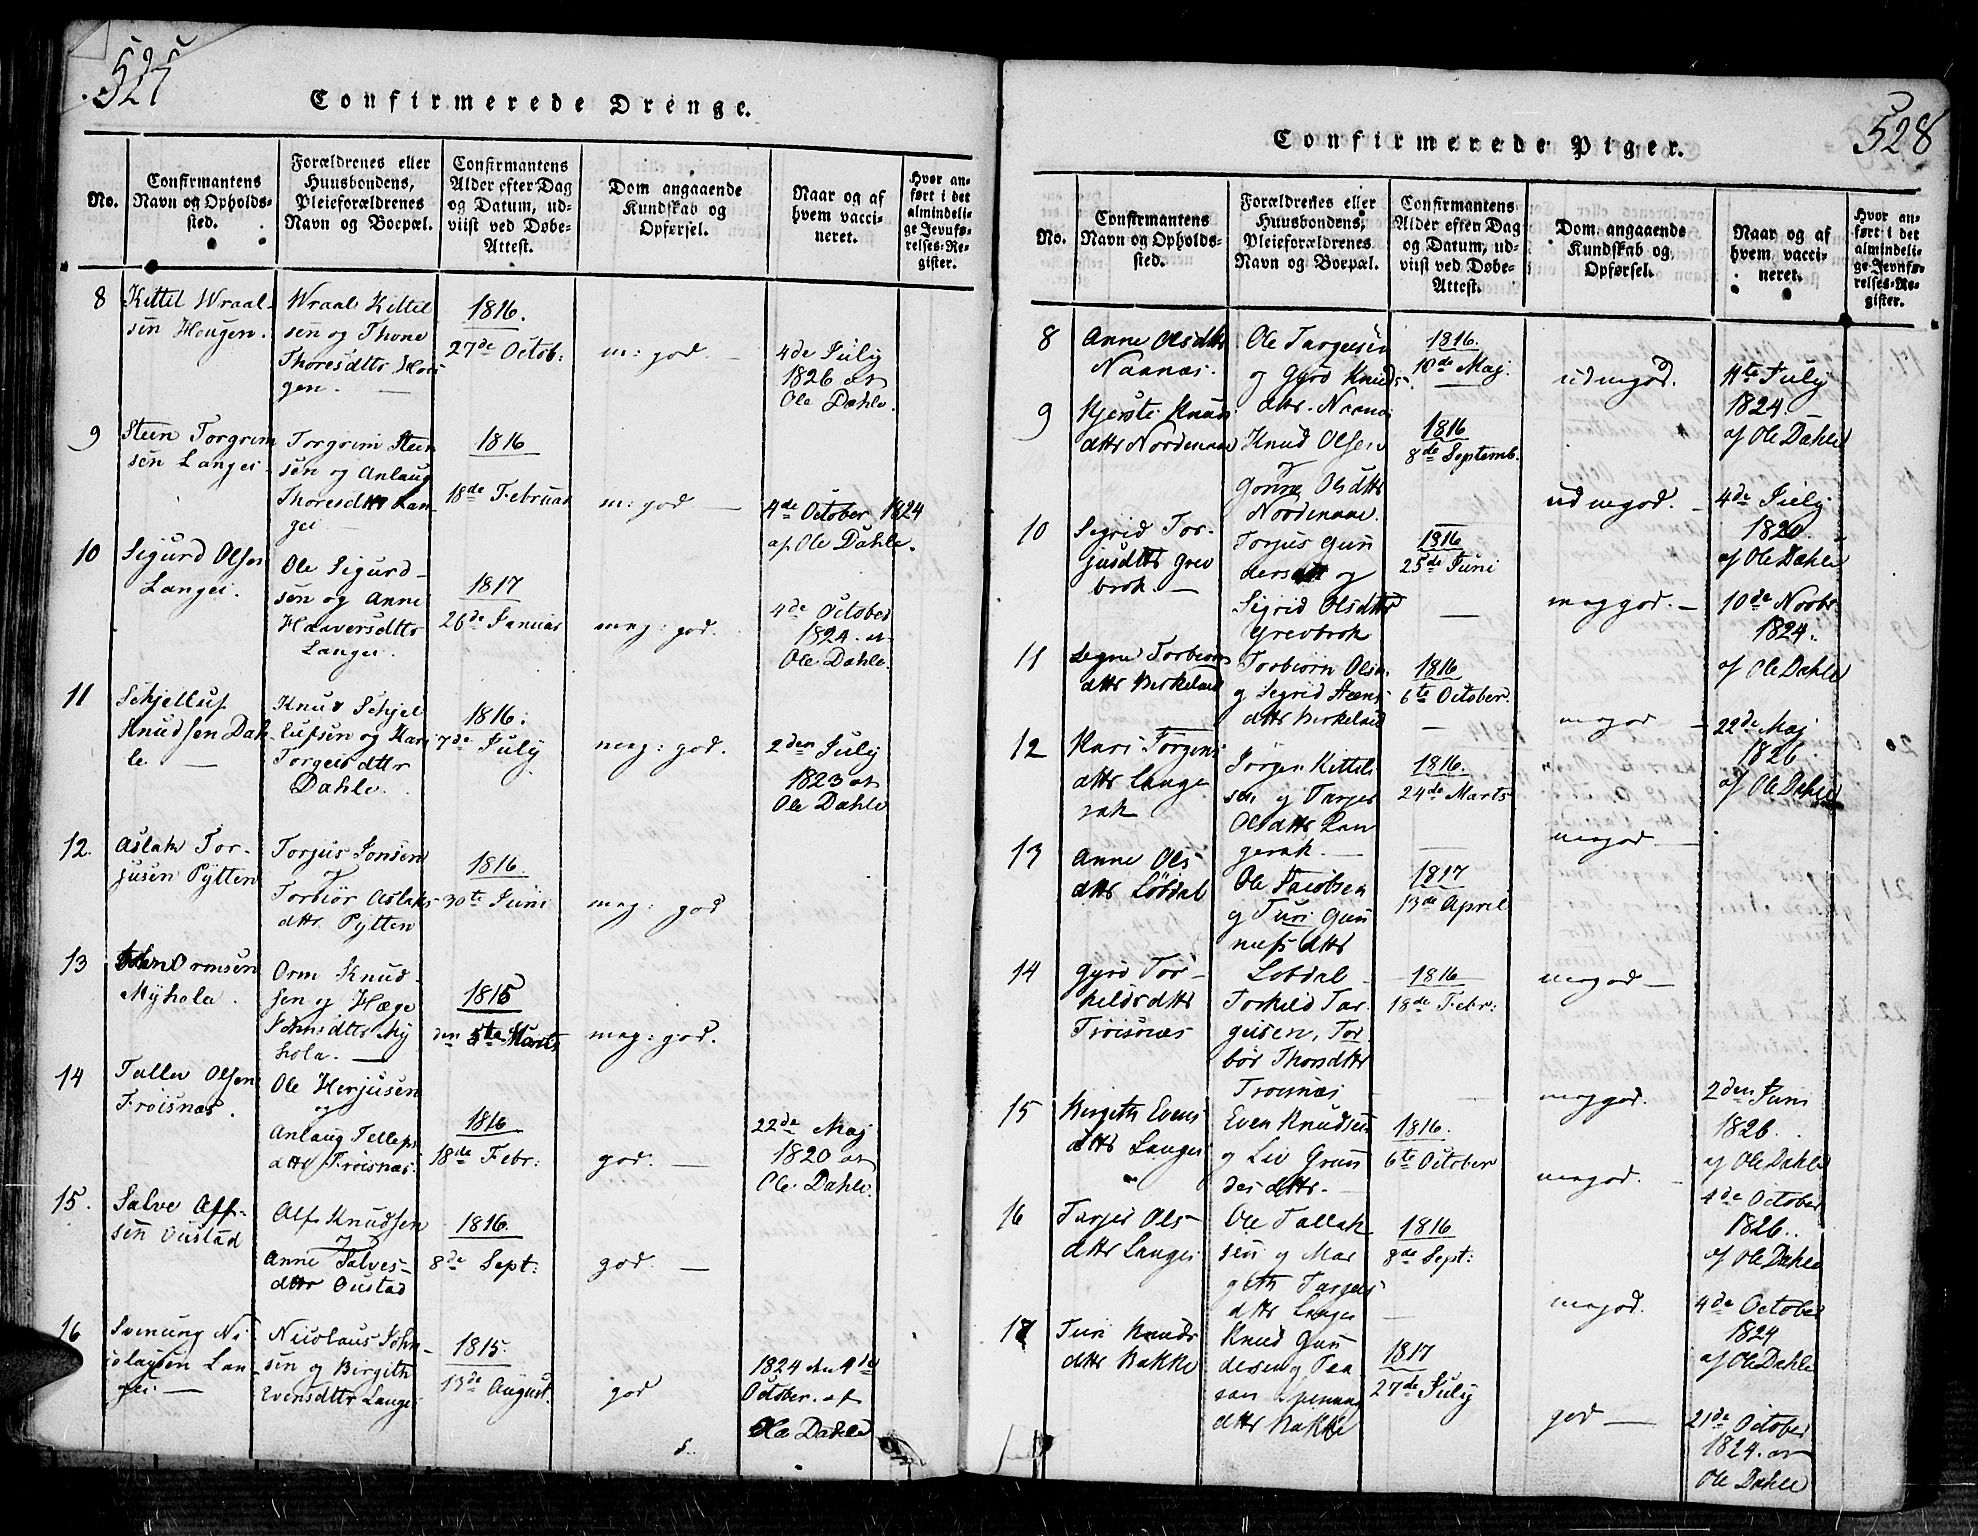 527
Confirmerede Drenge.
No.
Confirmantens
Navn og Opholds-
sted.
Forældrenes eller
Huusbondens,
Pleieforældrenes
Navn og Boepæl.
Confirmantens
Alder efter Dag
og Datum, ud-
viist ved Døbe-
Attest.
Dom angaaende
Kundskab og
Opførsel.
Naar og af
hvem vacci-
neret.
Hvor an-
ført i det
almindeli-
ge Jevnfø-
relses-Re-
gister.
8
Kittil Wraal-
sen Hougen.
Wraal Kittel
sen og Thone
Thoresdttr Hou
gen. —
1816.
27de Octob:
m: god. —
4de July
1826 af
Ole Dahle.
9
Steen Torgrim
sen Langei.
Torgrim Steen
sen og Anlaug
Thoresdttr Lan-
gei —
1816
18de Februar
m: god —
4de October 1824
af Ole Dahle.
10
Sigurd Olsen
Langei.
Ole Sigurd-
sen og Anne
Haaversdttr
Langei.
1817
26de Januar
meg: god.
4de October
1824. af
Ole Dahle.
11
Schjelluf
Knudsen Dah-
le —
Knud Schjel
lufsen og Kari
Torgeisdttr
Dahle.
1816.
7de July
meg: god.
2den July
1823 af
Ole Dahle
12.
Aslak Tor-
jusen Pytten
Torjus Jonsen
og
Torbiør Aslaks
dttr Pytten
1816
30te Juni
meg: god
13
Ormsen
Myhola.
Orm Knud-
sen og Hæge
Johnsdttr My
hola. —
1815
den 5te Marts
meg: god.
14
Tallev Olsen
Frøisnæs.
Ole Herjusen
og
Anlaug Tellefs
dttr Frøisnæs.
1816
18de Febr:
god. —
22de Maj
1820 af
Ole Dahle.
15.
Salve Alf-
sen Oustad
Alf Knudsen
og
Anne Salves-
dttr Oustad
1816.
8de Sept:
god. —
16
Svenung Ni
colaysen Lan-
gei —
Nicolaus John-
sen og Birgith
Evensdttr Lange
1815.
13de August.
god
1824 den 4de
October. af
Ole Dahle
528
Confirmerede Piger.
No.
Confirmantens
Navn og Opholds-
sted.
Forældrenes eller
Huusbondens,
Pleieforældrenes
Navn og Boepæl.
Confirmantens
Alder efter Dag
og Datum, ud-
viist ved Døbe-
Attest.
Dom angaaende
Kundskab og
Opførsel.
Naar og af
hvem vacci-
neret.
Hvor an-
ført i det
almindeli-
ge Jevnfø-
relses-Re-
gister.
8
Anne Olsdttr
Naanæs.
Ole Targeisen
og Gyro Knuds-
dttr. Naanæs
1816.
10de Maj.
udmgod.
11te July
1824. —
af Ole Dahle
9
Kjersti Knuds
dttr Nordenaae
Knud Olsen
og
Gonne Olsdttr
Nordenaae.
1816
8de Septemb.
udmgod. —
4de July
1820.
af Ole Dahle
10
Sigrid Tor-
jusdttr Grev
brok. —
Torjus Gun
dersen og
Sigrid Olsdttr
Grevbrok
1816
25de Juni
meggod. —
10de Novbr.
1824.
af Ole Dahle
11
Signe Torbiorns
dttr Birkeland
Torbiørn Olsn
og Sigrid Steens
dttr Birkeland
1816
6te October
megod —
22de Maj
1826
af Ole Dahle
12
Kari Jorgens
dttr Lange
rak
Jørgen Kittils
sen og Targer
Olsdttr Lan
gerak. —
1816.
24de Marts
megod —
13
Anne Ols-
dttr Løbdal
Ole Jacobsen
og Turi Gun
nufs dttr
Lobdal
1817
13de April
megod —
14
Gyro Tor-
kildsdttr
Frøisnæs
Torkild Tar-
geisen, Tor
bør Thorsdttr
Froisnæs
1816
18de Febr:
meggod.
2den Juni
1826.
af Ole Dahle
15
Birgith Evens
dttr Langei
Even Knudsen
og Liv Gun
desdttr. —
1816.
6te October
megod. —
4de October
1826.
af Ole Dahle
16
Targer Ols-
dttr Langei
Ole Tallak
sen og Mar
geth Targeis
dttr Langei
1816
8de Sept:
megod.
4de October
1824
af Ole Dahle
17
Turi Knuds
dttr Bakke
Knud Gun
desen og
dttr Bakke
1817
27de July
god —
21de October
1824. af
Ole Dahle